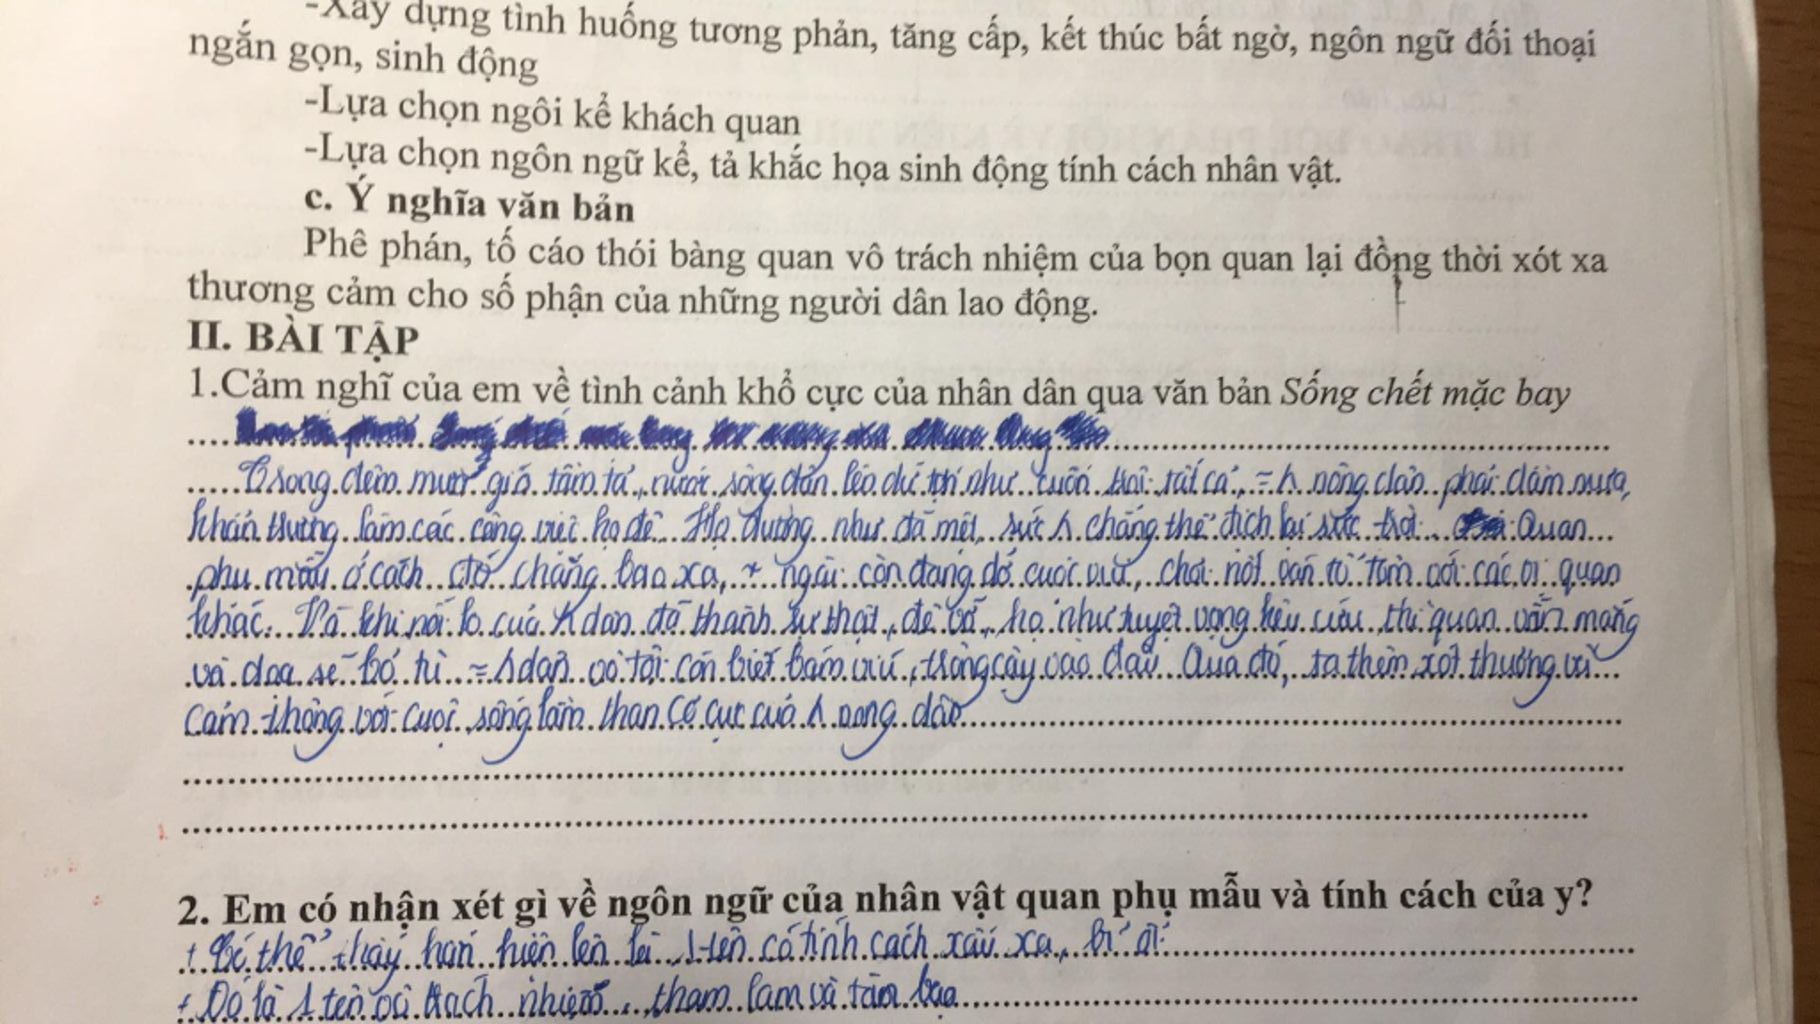 -Xây dựng tình huống tương phản, tăng cấp, kết thúc bất ngờ, ngôn ngữ đối thoại
ngắn gọn, sinh động
-Lựa chọn ngôi kể khách quan
-Lựa chọn ngôn ngữ kể, tả khắc họa sinh động tính cách nhân vật.
c. Ý nghĩa văn bản
Phê phán, tố cáo thói bàng quan vô trách nhiệm của bọn quan lại đồng thời xót xa
thương cảm cho số phận của những người dân lao động.
II. BÀI TẬP
1.Cảm nghĩ của em về tình cảnh khổ cực của nhân dân qua văn bản Sống chết mặc bay
Trong đêm mưa gió tầm tã, nước sông dân lên dữ tợn như cuốn trôi tất cả, nông dân phải dầm mưa,
khẩn trương làm các công việc hộ đê. Họ dường như đã mệt, sức chẳng thể địch lại sức trời. Quan
phụ mẫu ở cách đó chẳng bao xa, ngài còn đang dở cuộc vui, chơi nốt ván tổ tôm với các vị quan
khác. Và khi nỗi lo của dân đã thành sự thật, đê vỡ, họ như tuyệt vọng kêu cứu, thì quan vẫn mắng
và dọa sẽ bỏ tù dân vô tội còn biết bám víu, trông cậy vào đâu. Qua đó, ta thêm xót thương và
cảm thông với cuộc sống lầm than cơ cực của nông dân
2. Em có nhận xét gì về ngôn ngữ của nhân vật quan phụ mẫu và tính cách của y?
+ Có thể thấy hắn hiện lên là 1 tên có tính cách xấu xa, bỉ ổi
+ Đó là 1 tên vô trách nhiệm, tham lam và tàn bạo